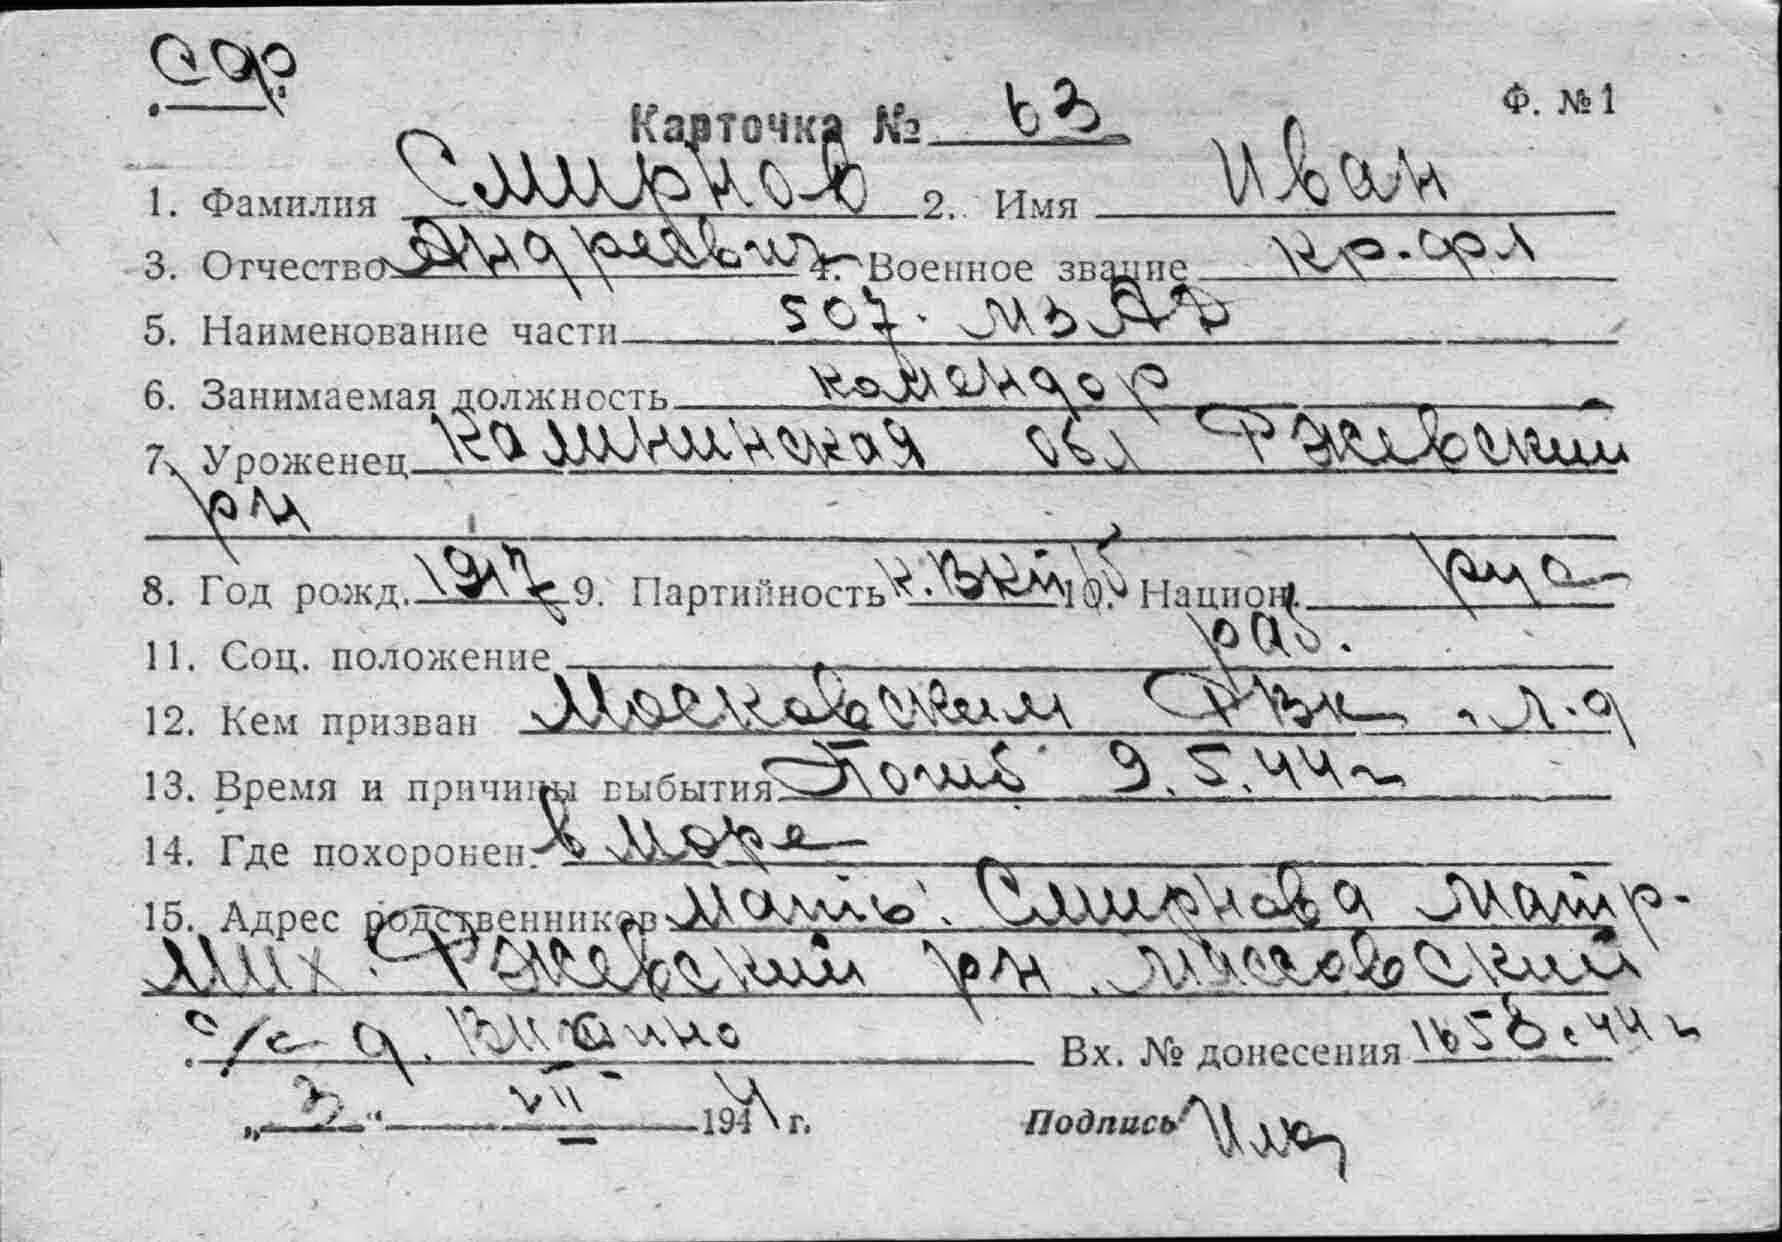 Сдр.
Карточка № 63 Ф. № 1
1. Фамилия Смирнов 2. Имя Иван
3. Отчество Андреевич 4. Военное звание кр.фл
5. Наименование части 507. МЗАД
6. Занимаемая должность комендор
7. Уроженец Калининская обл Ржевский
рн
8. Год рожд. 1917 9. Партийность к. ВКПб 10. Национ. рус
11. Соц. положение раб.
12. Кем призван Московским РВК
13. Время и причины выбытия Погиб 9.5.44г
14. Где похоронен. в море
15. Адрес родственников Мать: Смирнова Матр.
Мих. Ржевский рн
с/с д. Вх. № донесения 1658.44г
„3“ VII 1944 г. Подпись